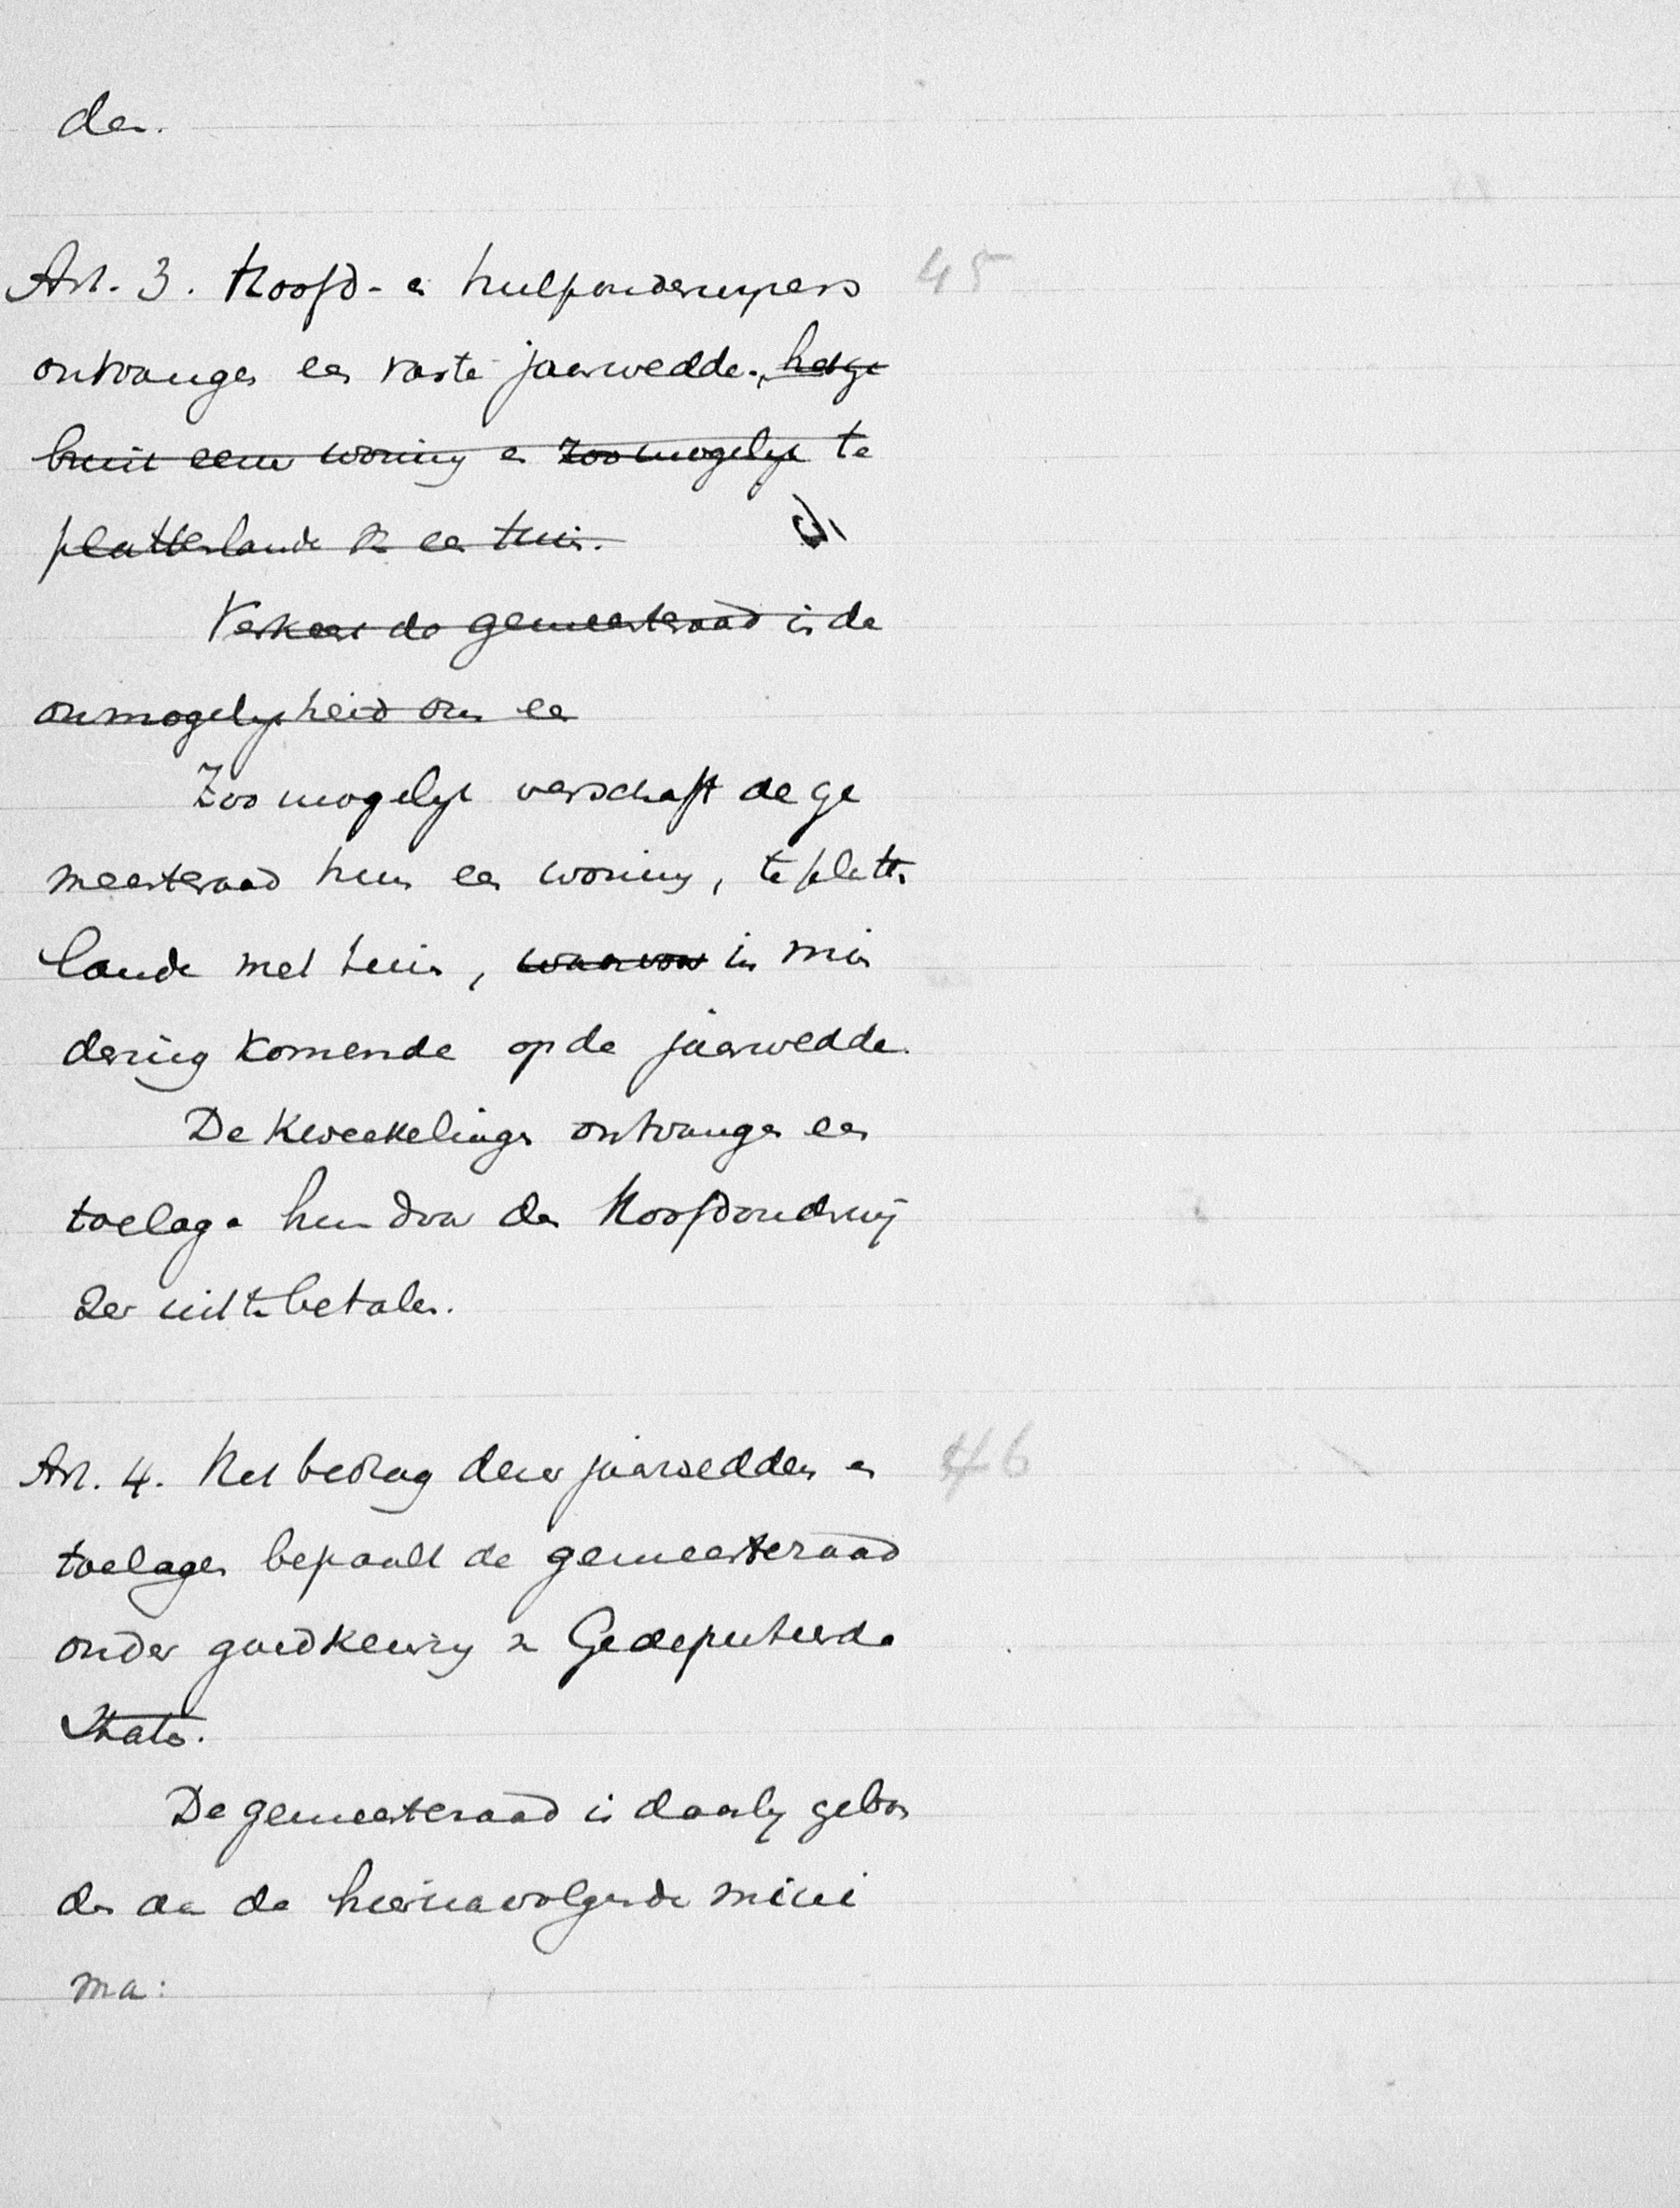 den.
Art. 3. Hoofd- en hulponderwijzers 45
ontvangen een vaste jaarwedde, het ge
bruik eener woning en zoo mogelijk te
plattenlande van een tuin.
Verkeert de gemeenteraad in de
onmogelijkheid om een
Zoo mogelijk verschaft de ge
meenteraad hun een woning, te platten
lande met tuin, waarvan in min
dering komende op de jaarwedde.
De kweekelingen ontvangen een
toelage hun door den Hoofdonderwij
zer uit te betalen.
Art. 4. Het bedrag dier jaarwedden en 46
toelagen bepaalt de gemeenteraad
onder goedkeuring van Gedeputeerde
Staten.
De gemeenteraad is daarbij gebon
den aan de hiernavolgende mini
ma: